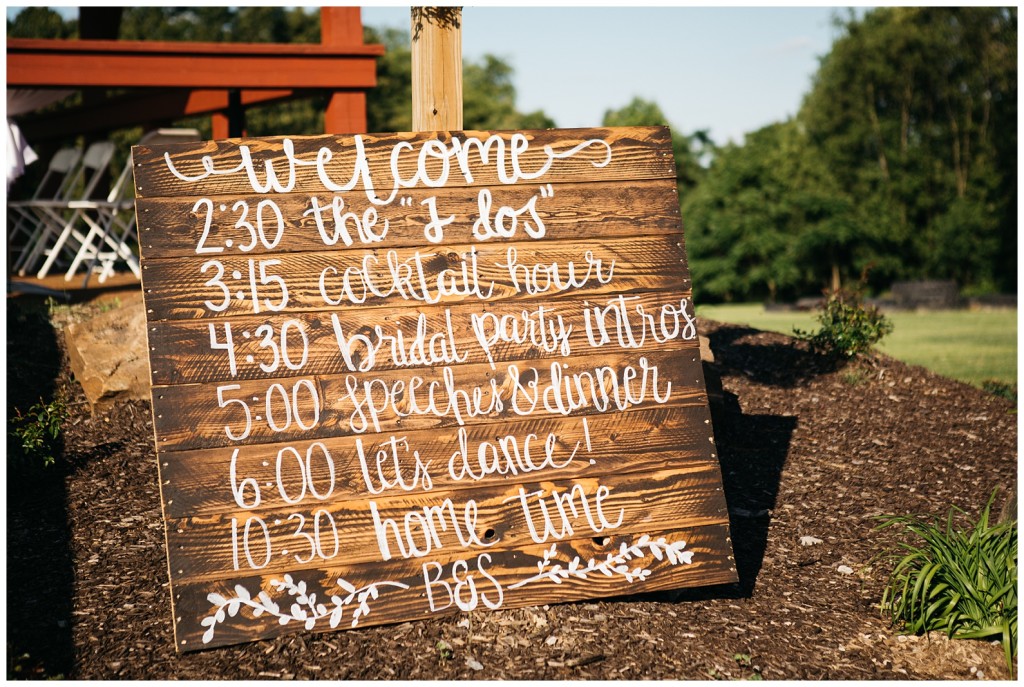 welcome
2:30 the "I dos"
3:15 cocktail hour
4:30 bridal party intros
5:00 speeches & dinner
6:00 let's dance!
10:30 home time
B&S